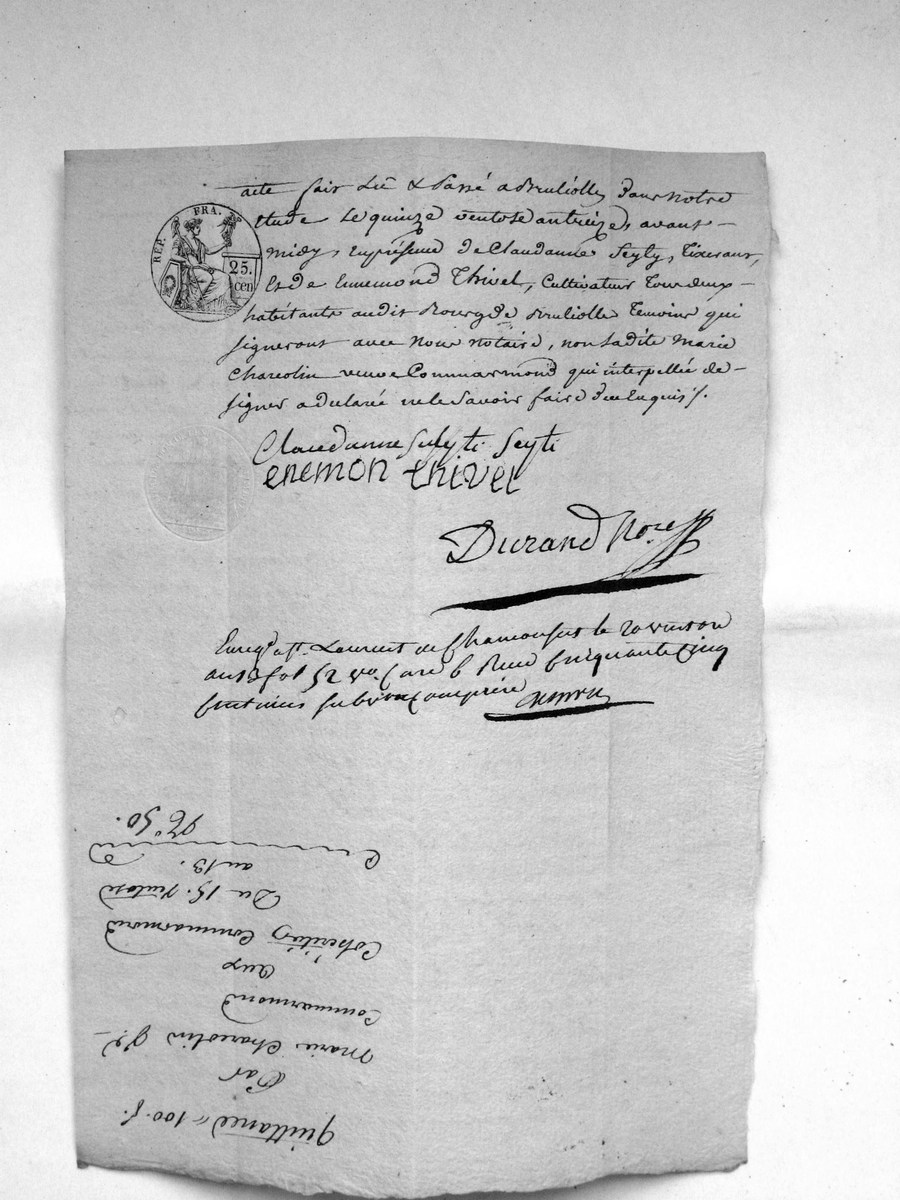 acte fait Lu & Passé a Brulliolle Dans notre
Etude Le quinze ventose an treize avant
midy, En présence de Claudanne Seyty, Tixerant,
Et de Ennemond Thivel, Cultivateur Tous deux
habitants audit Bourg de Brulliolle Temoins qui
signeront avec Nous notaire, non Ladite Marie
Charcolin veuve Commarmond qui interpellée de
signer a declaré ne le Savoir faire De ce Enquis /.
REP. FRA.
25.
cen
Claudanne Seyti
enemon thivel
Durand No.re
Enreg.é a St. Laurent de Chamousset le 20 ventose
an 13 fol 52 vo. Case 6 Reçu Cinquante Cinq
Centimes Subvention Comprise
Quittance 100 f.
Par
Marie Charcolin
Commarmond
aux
Cohéritiers Commarmond
Du 15. Ventose
an 13.